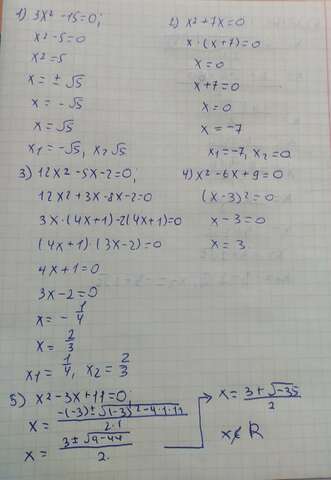 1) 3x² -15=0;
x² -5=0
x² =5
x = ± √5
x = -√5
x = √5
x₁ = -√5, x₂ √5
2) x² +7x=0
x · (x+7)=0
x=0
x+7=0
x=0
x=-7
x₁=-7, x₂=0
3) 12x² -5x-2=0;
12x² +3x-8x-2=0
3x·(4x+1)-2(4x+1)=0
(4x+1)·(3x-2)=0
4x+1=0
3x-2=0
x = - 1/4
x = 2/3
x₁ = 1/4, x₂ = 2/3
4) x² -6x+9=0
(x-3)² =0
x-3=0
x=3
5) x² -3x+11=0;
x = -(-3)±√(-3)²-4·1·11 / 2·1
x = 3±√9-44 / 2·
→ x = 3+√-35 / 2
x∉R